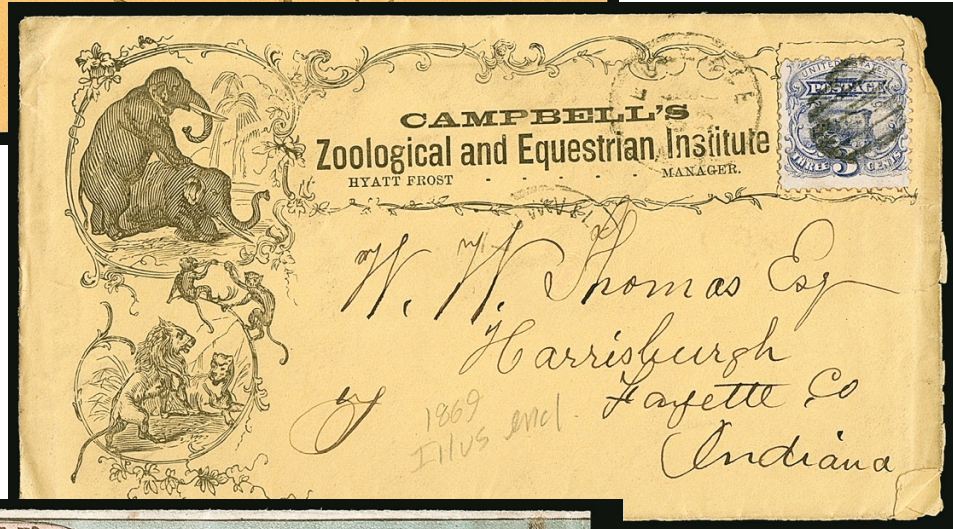 CAMPBELL'S
Zoological and Equestrian Institute
HYATT FROST . . . . . . MANAGER.
UNITED STATES
POSTAGE
THREE 3 CENTS
W. W. Thomas Esq
Harrisburgh
Fayette Co
Indiana
1869
Illus encl.